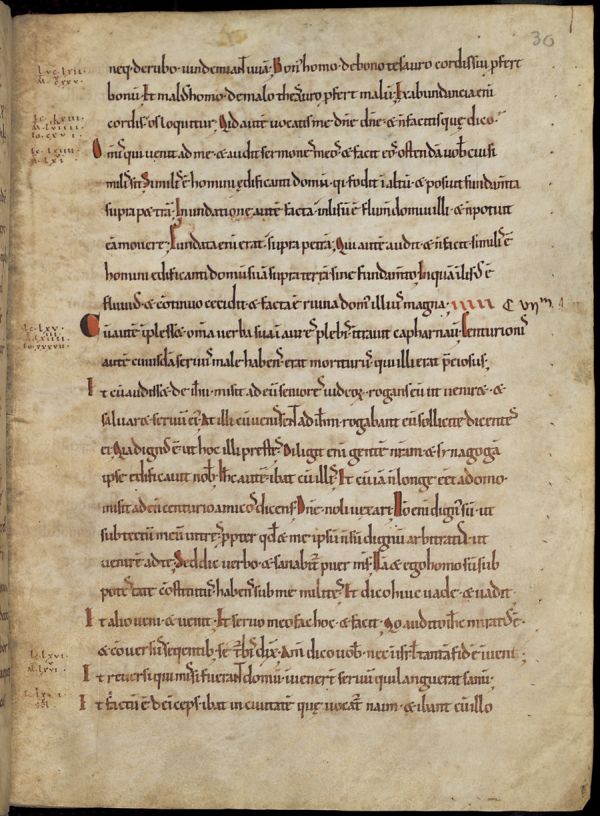 30
neq; de rubo uindemiant uuā. Bon' homo de bono tesauro cordis sui ꝓfert
bonū. Et mal' homo de malo thesauro ꝓfert malū. Ex abundancia enī
cordis os loquitur. Qid autē uocatis me dn̄e dn̄e & n̄ facitis quę dico.
Omīs qui uenit ad me & audit sermones meos & facit eos ostendā uob cui si
milis sit. Similis ē homini ędificanti domū. qi fodit ī altū & posuit fundam̄ta
supra petrā. Inundatione autē facta inlisū ē flum̄ domui illi & n̄ potuit
eā mouere. Fundata enī erat supra petrā. Qui autē audit & n̄ facit similis ē
homini edificanti domū suā supra terrā sine fundam̄to. In quā ilisus ē
fluuius & cōtinuo cecidit & facta ē ruina domus illius magna.
Cū autē īplesset omīa uerba sua ī aures plebis ītrauit capharnaū. Centurionis
autē cuiusdā seruus male habens erat moriturus qui illi erat p̄ciosus.
Et cū audisset de ihū misit ad eū seniores iudeor rogans eū ut ueniret &
saluaret seruū ei'. At illi cū uenissent ad ihm rogabant eū sollicite dicentes
ei. Qia dignus ē ut hoc illi prestes. Diligit enī gentē nr̄am & synagogā
ipse edificauit nob. Ihc autē ibat cū illis. Et cū iā n̄ longe eēt a domo
misit ad eū centurio amicos dicens. Dn̄e noli uexari. Nō enī dignus sū ut
sub tectū meū intres. ꝓpter qd & me ipsū n̄ sū dignū arbitratus ut
venirē ad te. Sed dic uerbo & sanabit puer ms. Nā & ego homo sū sub
potestate cōstitutus habens sub me milites. Et dico huic uade & uadit.
Et alio ueni & uenit. Et seruo meo fac hoc & facit. Qo audito ihc miratus ē
& cōuersus seqentib se turbis dix. Am̄ dico uob nec in isrl tantā fidē īueni.
Et reuersi qui misi fuerant domū inuenert seruū qui languerat sanū.
Et factū ē deīceps ibat in ciuitatē quę uocat naim & ibant cū illo